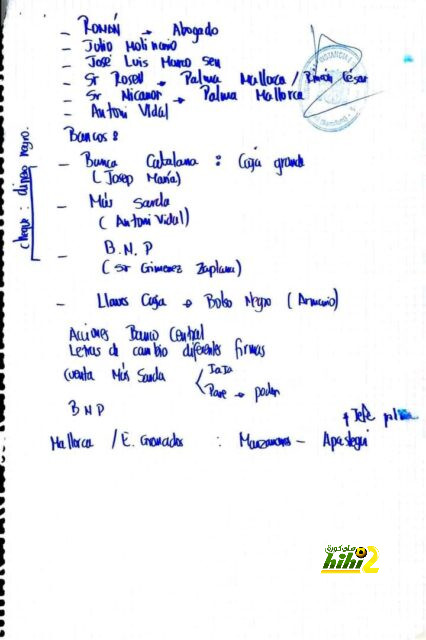 - ROMÁN → Abogado
- Julio Molinario
- José Luis Marco Seu
- Sr Rosell → Palma Mallorca / Román César
- Sr Nicanor → Palma Mallorca
- Antoni Vidal
Bancos:
cheque: dinero negro.
- Banca Catalana : Caja grande
(Josep María)
- Más Sarda
(Antoni Vidal)
- B.N.P
(Sr Gimenez Zaplana)
- Llaves Caja → Bolso Negro (Armario)
Acciones Banco Central
Letras de cambio diferentes firmas
Cuenta Más Sarda < IaIa
Pare → poder
BNP
+ Jefe
Mallorca / E. Granados : Manzanares - Apastegui
هاي كورة
hihi2